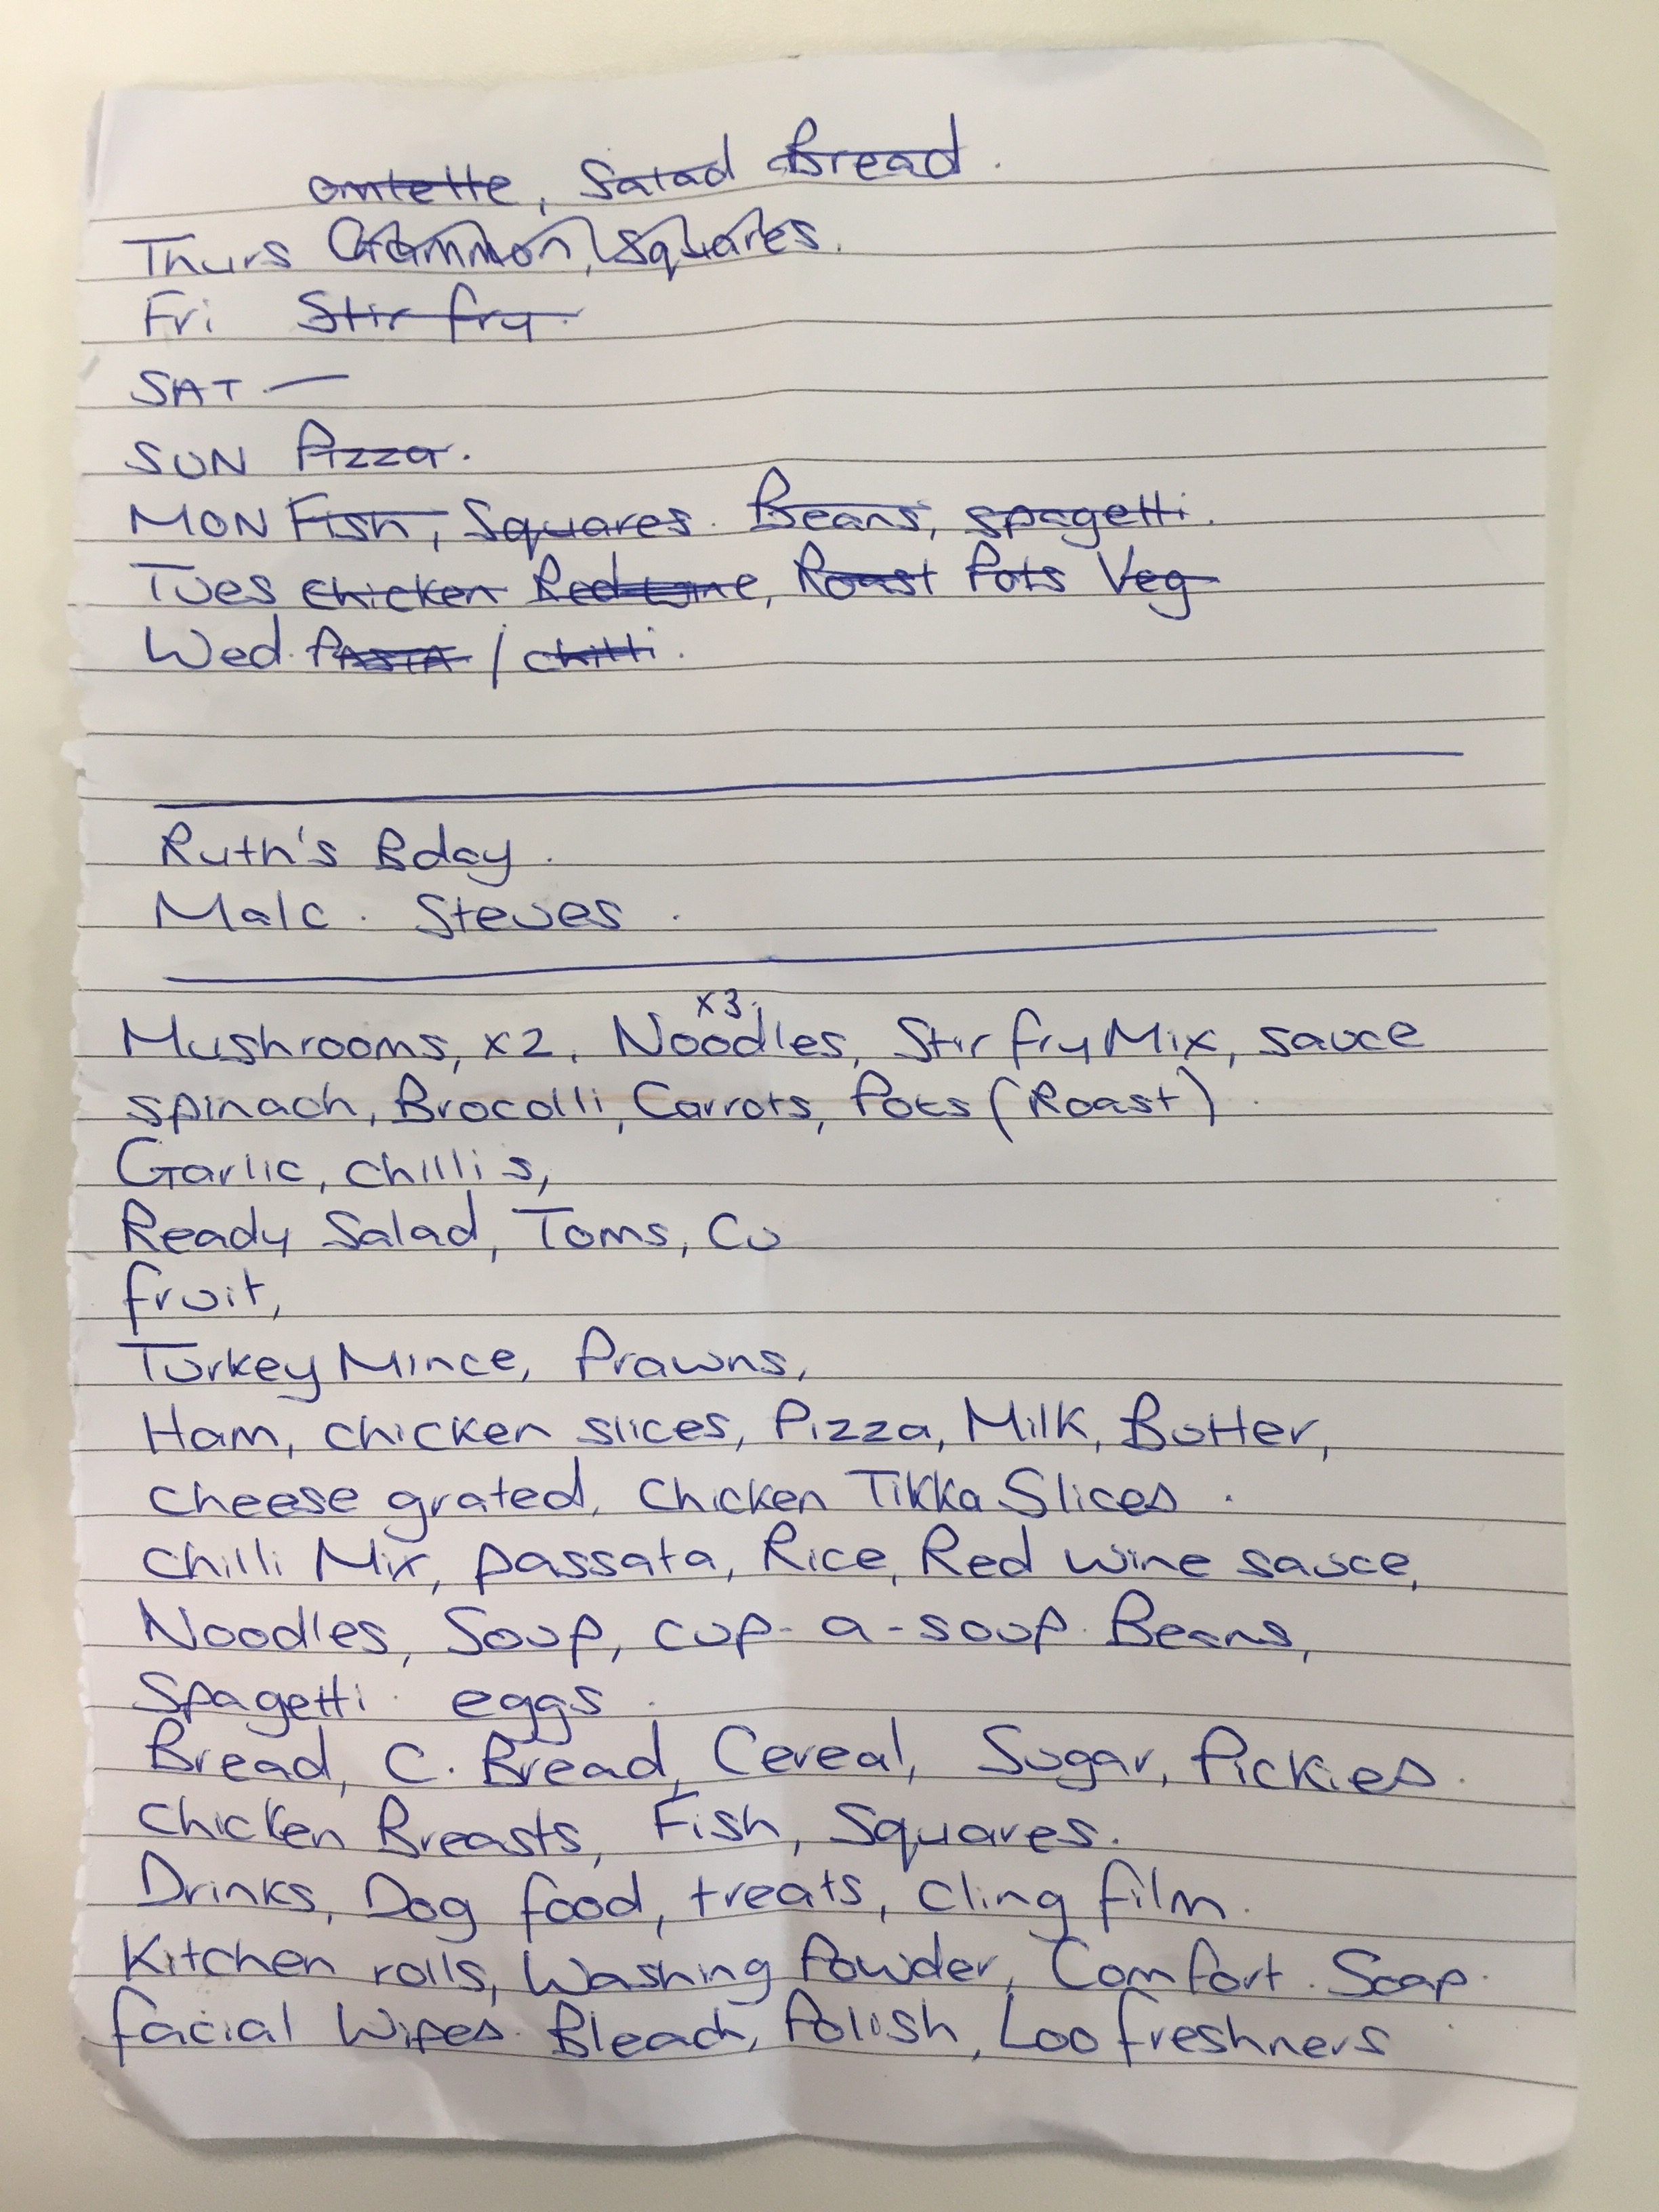 omlette, Salad Bread.
Thurs Gammon, Squares.
Fri Stir fry
SAT —
SUN Pizza.
MON Fish, Squares. Beans, spagetti.
Tues chicken Red wine, Roast Pots Veg
Wed. PASTA / chilli.
Ruth's Bday.
Malc. Steves.
x3.
Mushrooms, x2. Noodles, Stir fry Mix, sauce
spinach, Brocolli, Carrots, Pots (Roast).
Garlic, chilli s,
Ready Salad, Toms, Cu
fruit,
Turkey Mince, Prawns,
Ham, chicken slices, Pizza, Milk, Butter,
cheese grated, Chicken Tikka Slices.
chilli Mix, passata, Rice, Red wine sauce,
Noodles, Soup, cup-a-soup. Beans,
Spagetti. eggs.
Bread, C. Bread, Cereal, Sugar, Pickies.
chicken Breasts, Fish, Squares.
Drinks, Dog food, treats, cling film.
Kitchen rolls, Washing Powder, Comfort. Soap.
facial Wipes. Bleach, Polish, Loo freshners